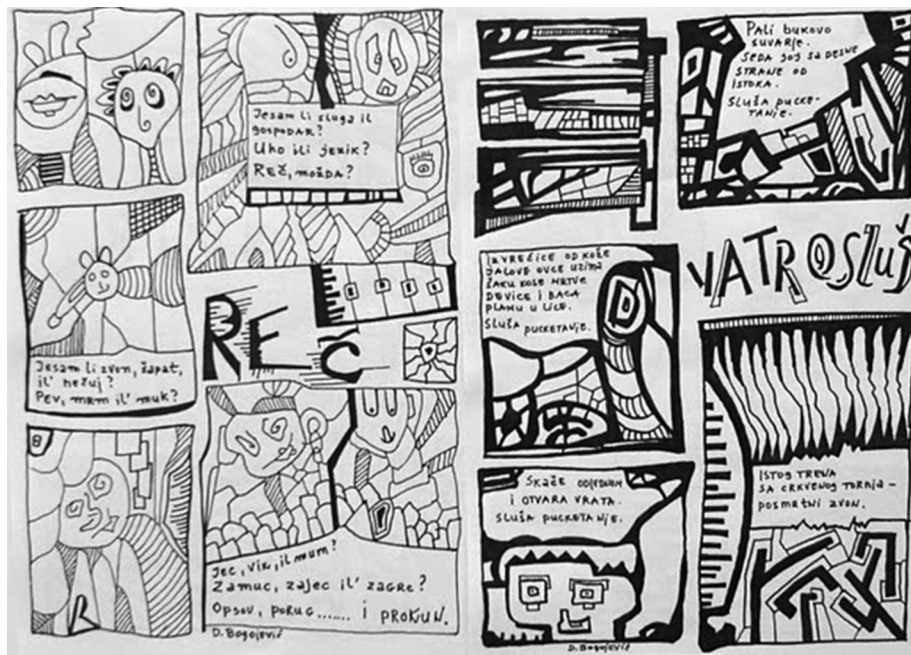 Jesam li sluga il
gospodar?
Uho ili jezik?
REČ, možda?
Jesam li zvon, šapat,
il' nečuj?
Pev, mrm il' muk?
REČ
Jec, vik, il mum?
Zamuc, zajec il' zagrc?
Opsov, porug....... i PROKUN.
D. Bogojević
PALI bukovo
SUVARJE.
SEDA JOJ SA DESNE
STRANE OD
ISTOKA.
SLUŠA PUCKE-
TANJE.
VATROSLUŠ
IZ VREĆICE OD KOŽE
JALOVE OVCE UZIMA
ŠAKU KOSE MRTVE
DEVICE I BACA
PLAMU U LICE.
SLUŠA PUCKETANJE.
SKAČE ODJEDNOM
I OTVARA VRATA.
SLUŠA PUCKETANJE.
ISTOG TRENA
SA CRKVENOG TORNJA-
POSMRTNI ZVON.
D. Bogojević